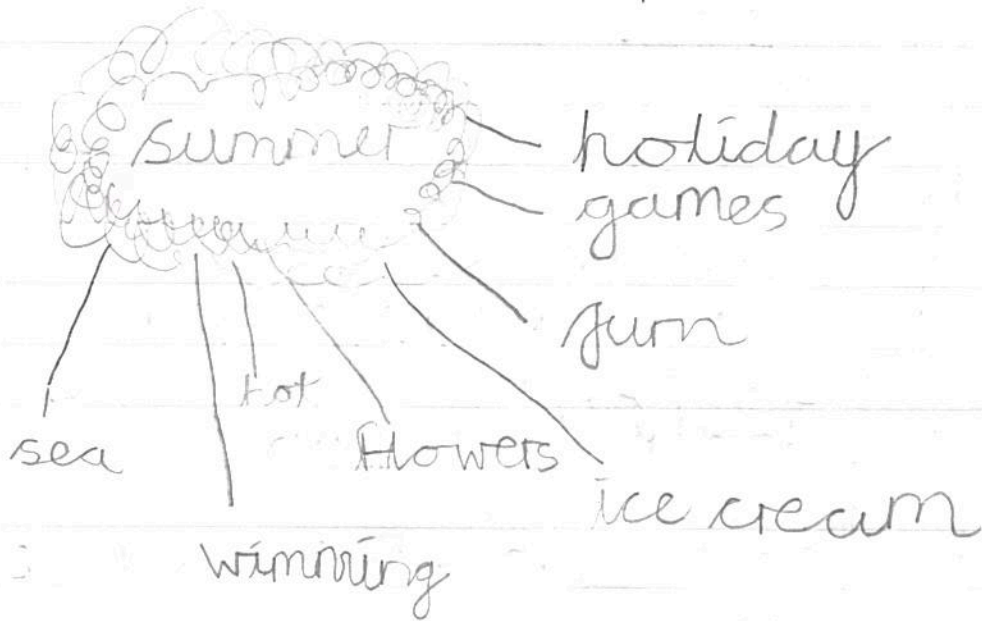 summer
holiday
games
furn
hot
sea
flowers
ice cream
wimming